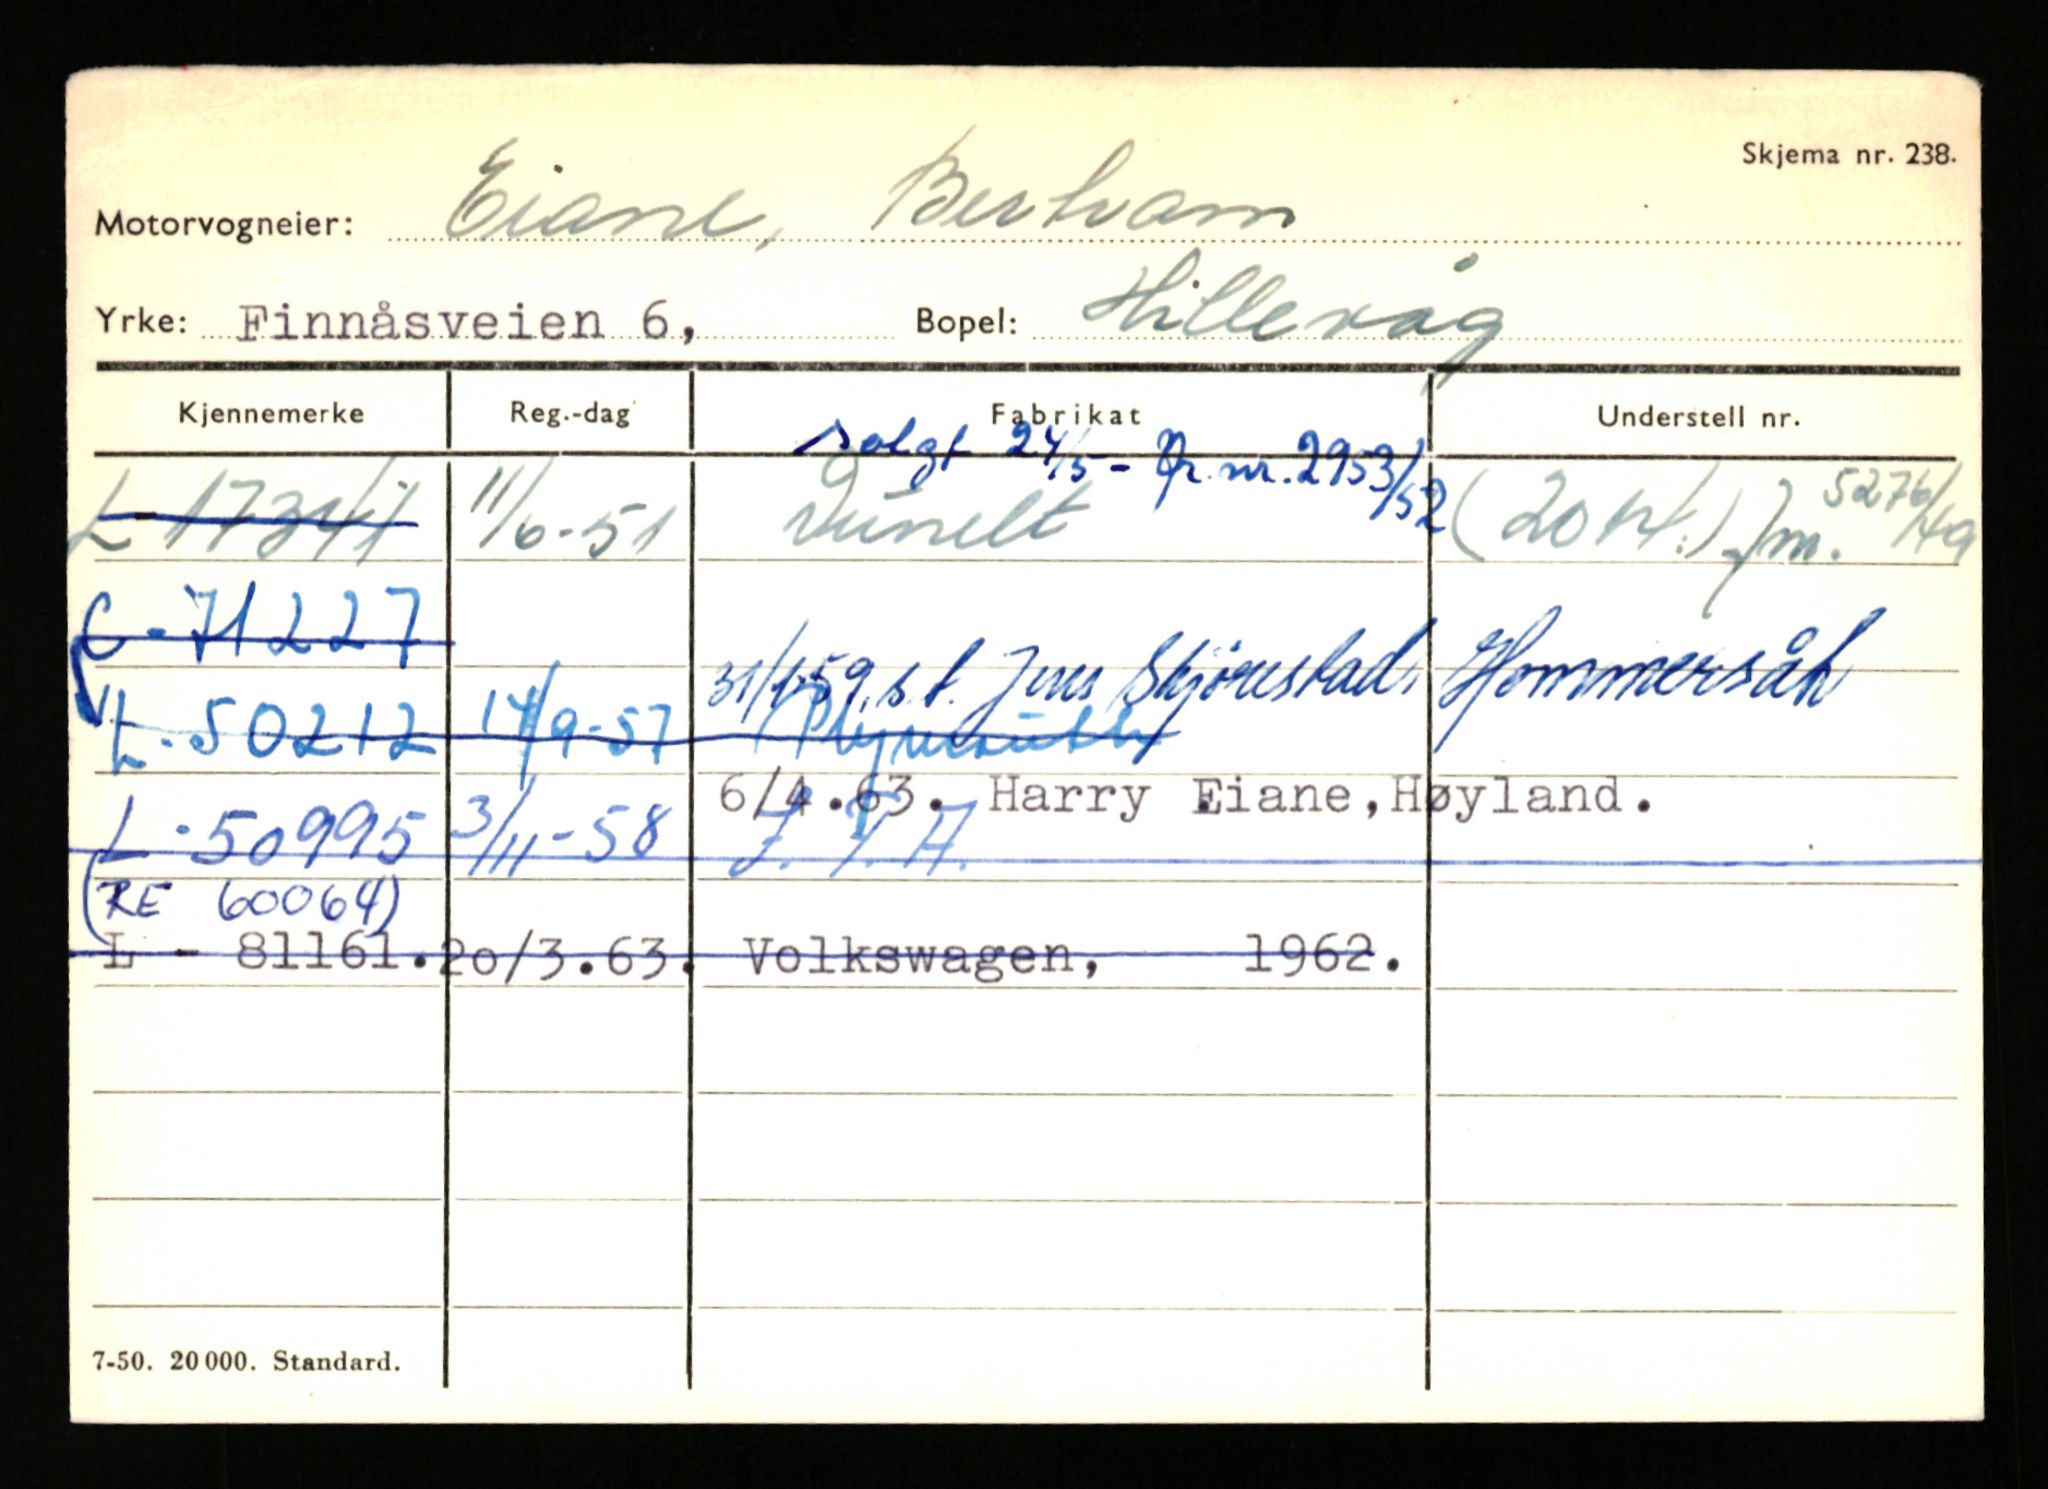 Skjema nr. 238.
Motorvogneier: Eiane, Bertram
Yrke: Finnåsveien 6, Bopel: Hillevåg
Kjennemerke Reg.-dag Fabrikat Understell nr.
solgt 24/5 - nr. 2953/52
L - 17341 11/6-51 Dunelt (20 M.) 5276/49
C - 71227
31/1-59, s.t. Jens Skjörestad, Hommersåk
L - 50212 14/9-57 Plymouth
6/4.63. Harry Eiane, Høyland.
L - 50995 3/11-58
(RE 60064)
L - 81161. 20/3.63. Volkswagen, 1962.
7-50. 20 000. Standard.